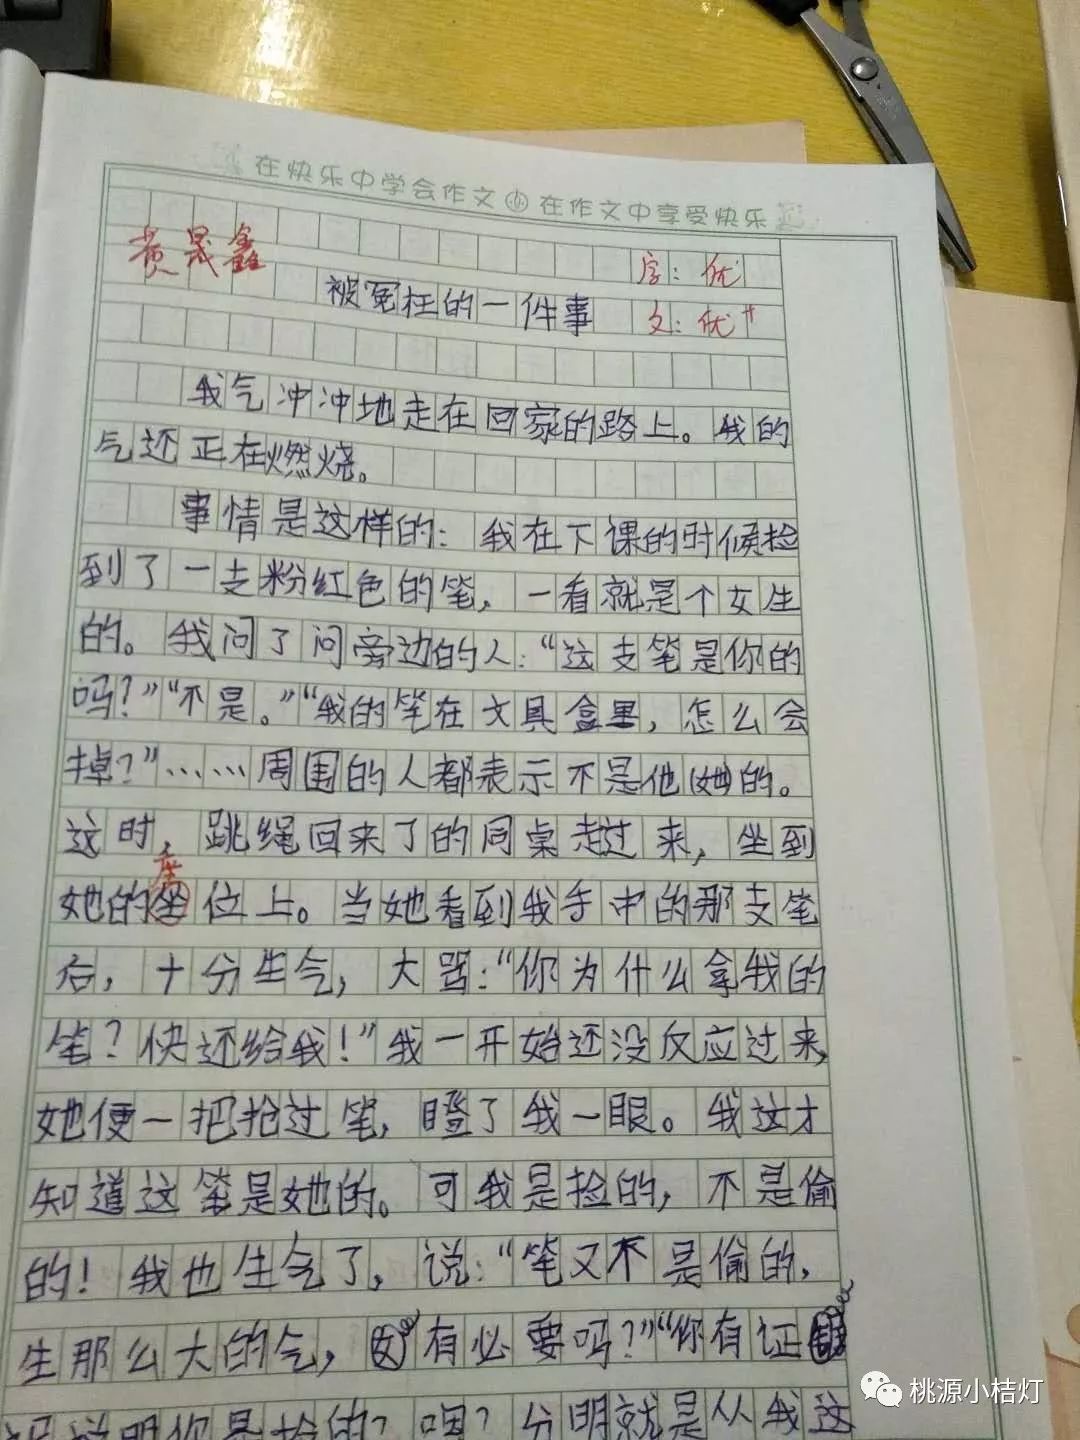 在快乐中学会作文 在作文中享受快乐
黄晟鑫
字：优
被冤枉的一件事
文：优+
我气冲冲地走在回家的路上。我的
气还正在燃烧。
事情是这样的：我在下课的时候捡
到了一支粉红色的笔，一看就是个女生
的。我问了问旁边的人：“这支笔是你的
吗？”“不是。”“我的笔在文具盒里，怎么会
掉？”……周围的人都表示不是他（她）的。
这时，跳绳回来了的同桌走过来，坐到
座
她的坐位上。当她看到我手中的那支笔
后，十分生气，大骂：“你为什么拿我的
笔？快还给我！”我一开始还没反应过来，
她便一把抢过笔，瞪了我一眼。我这才
知道这笔是她的。可我是捡的，不是偷
的！我也生气了，说：“笔又不是偷的，
生那么大的气，有必要吗？”“你有证
说明你是捡的？啊？分明就是从我这
桃源小桔灯